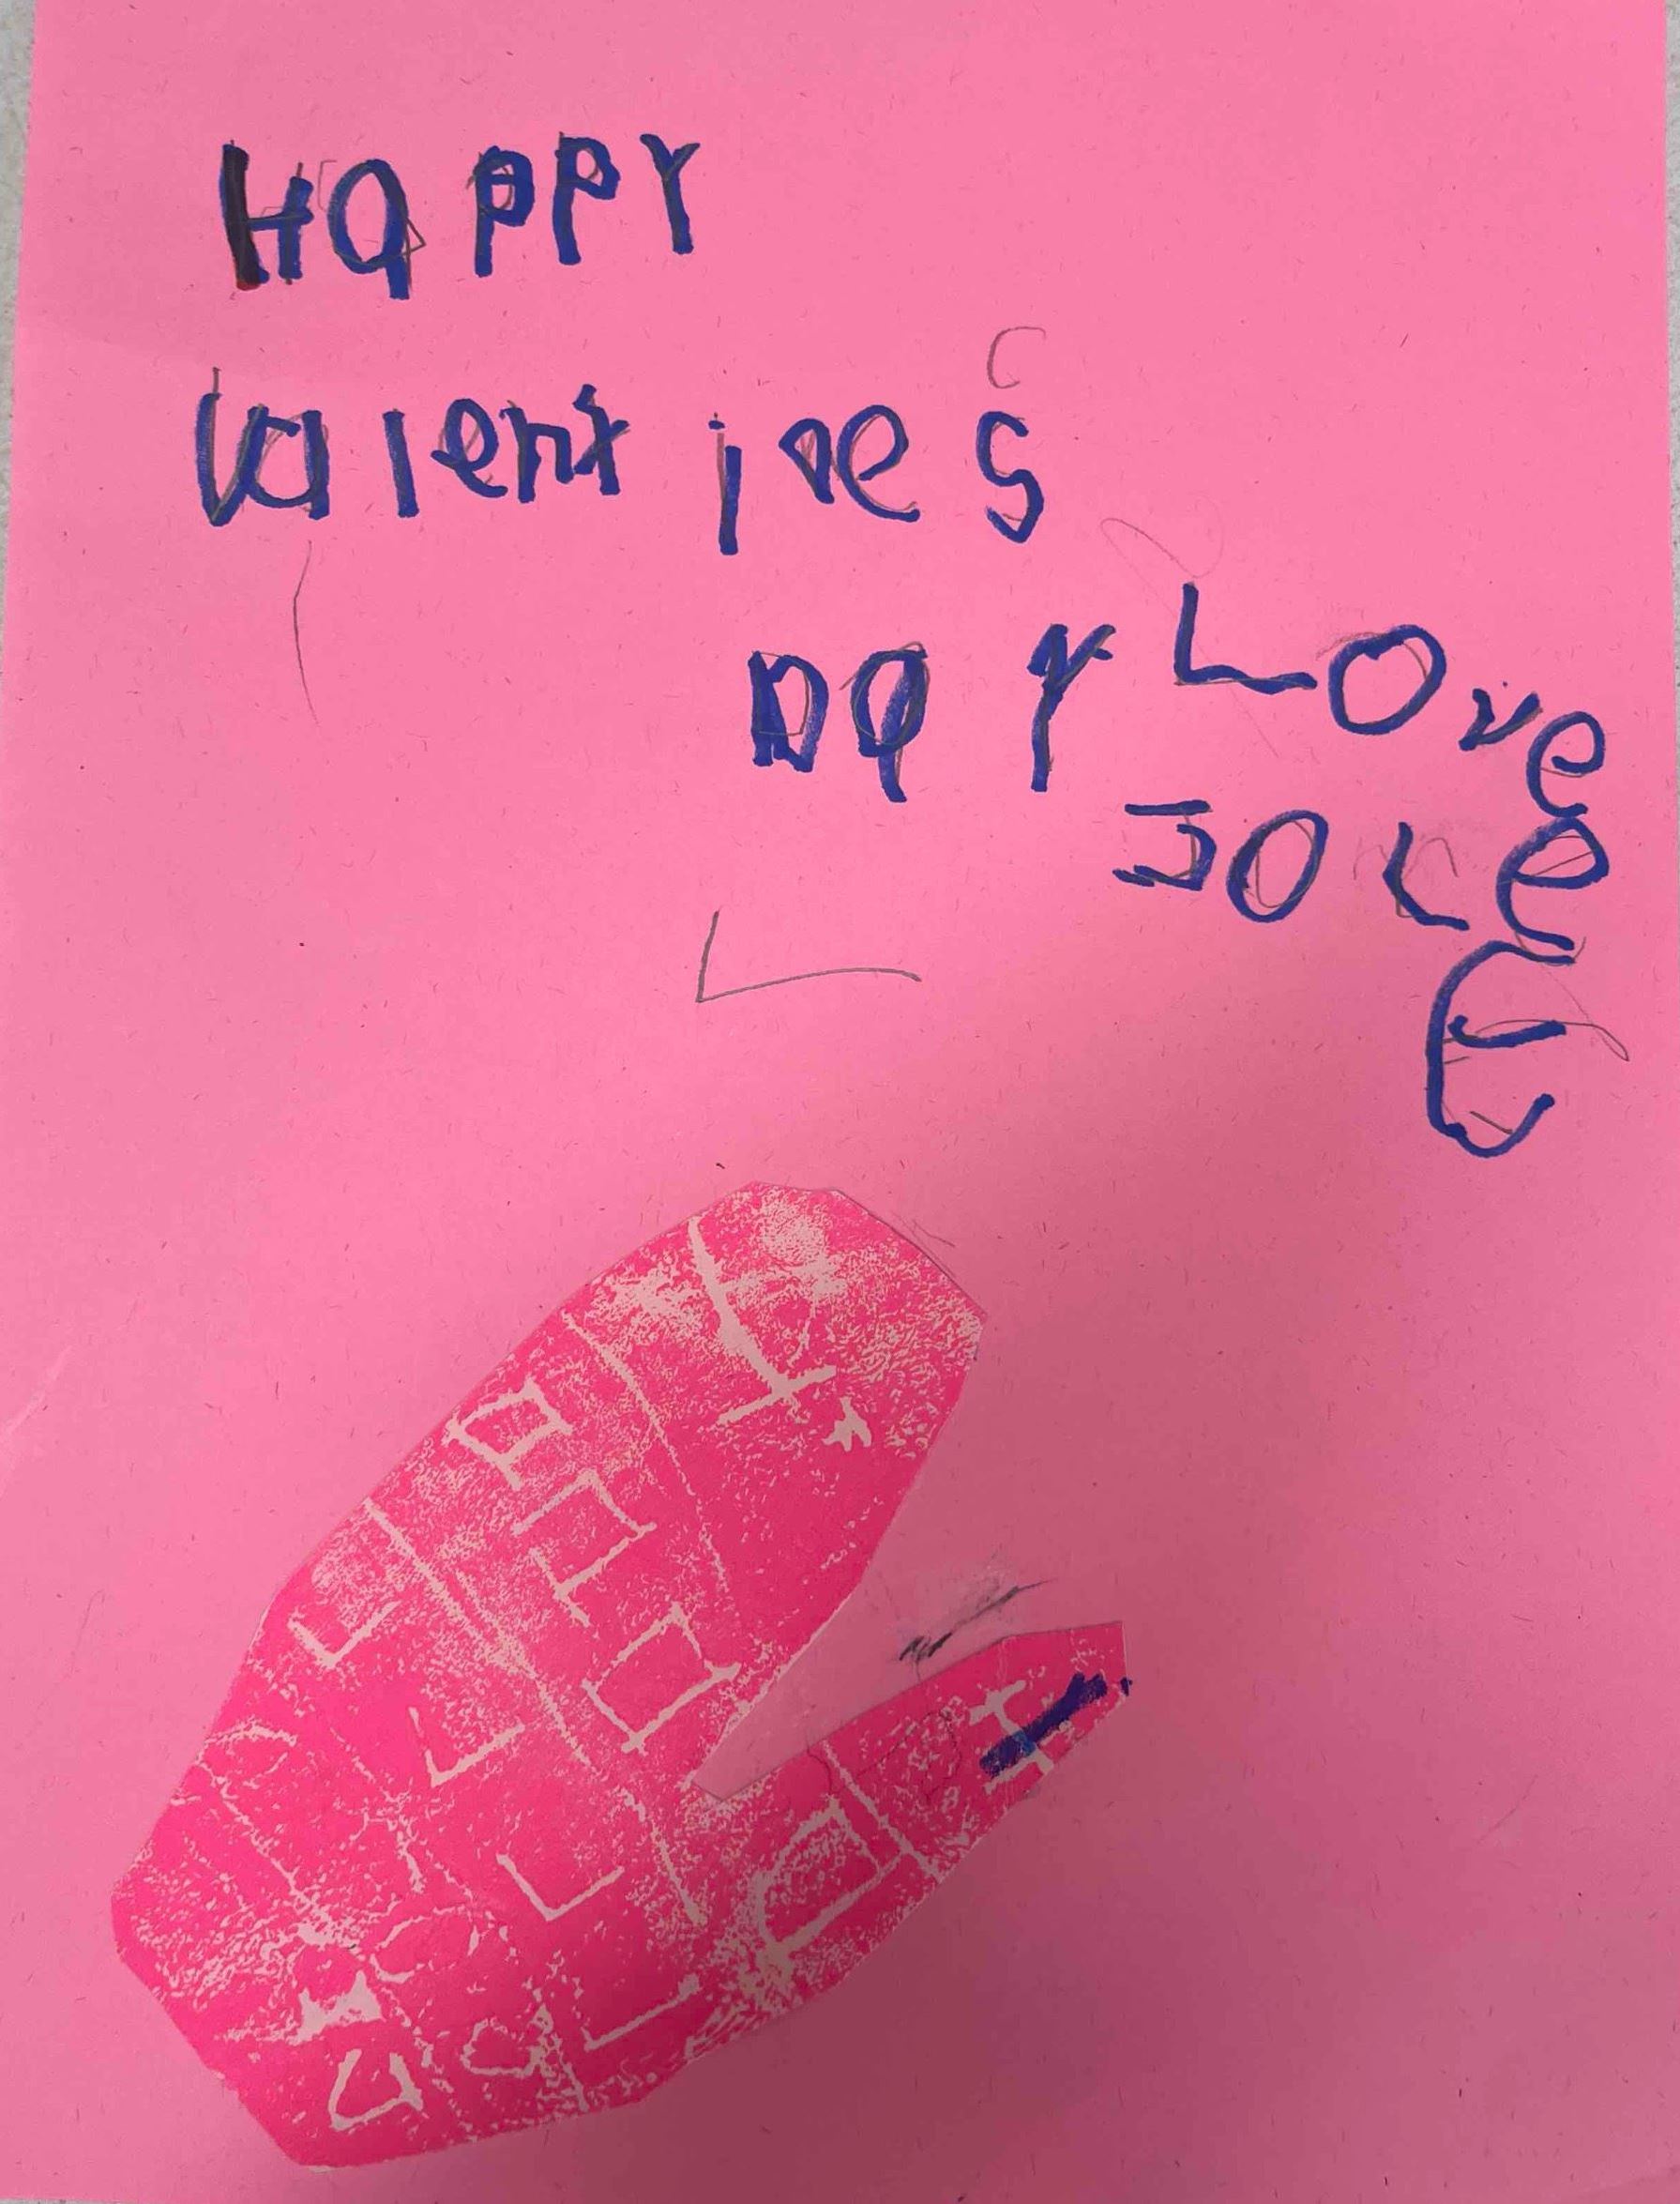 Happy
Valentines
Day Love